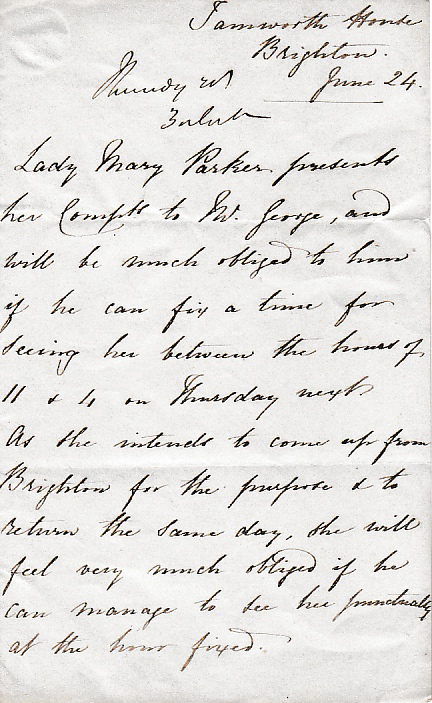 Tamworth House
Brighton.
June 24.
Lady Mary Parker presents
her Complts to Mr. George, and
will be much obliged to him
if he can fix a time for
seeing her between the hours of
11 & 4 on Thursday next.
As she intends to come up from
Brighton for the purpose & to
return the same day, she will
feel very much obliged if he
can manage to see her punctually
at the hour fixed.